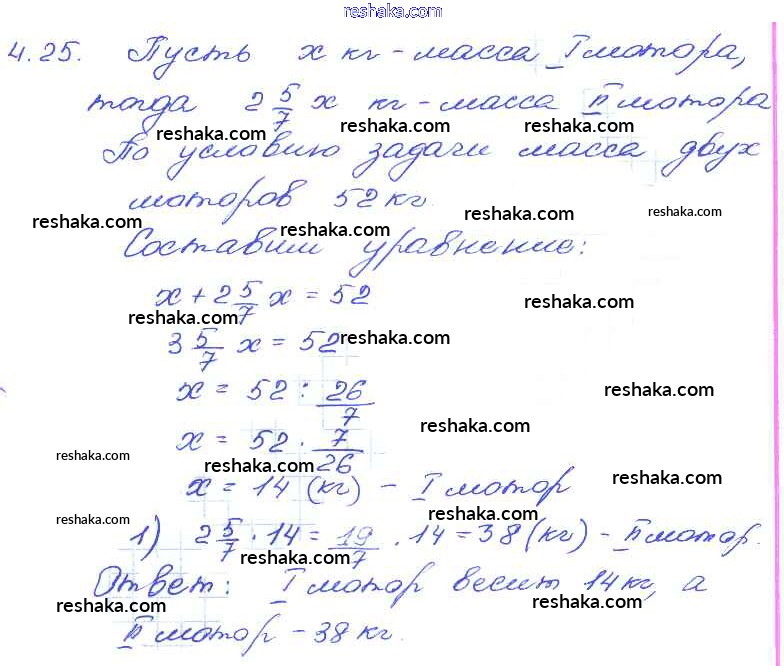 reshaka.com
4.25. Пусть x кг - масса I мотора,
тогда 2 5/7 x кг - масса II мотора
reshaka.com reshaka.com reshaka.com
По условию задачи масса двух
моторов 52 кг.
reshaka.com reshaka.com reshaka.com reshaka.com
Составим уравнение:
x + 2 5/7 x = 52
reshaka.com reshaka.com
3 5/7 x = 52
reshaka.com
x = 52 : 26/7
reshaka.com
x = 52 · 7/26
reshaka.com reshaka.com reshaka.com reshaka.com
x = 14 (кг) - I мотор
reshaka.com
1) 2 5/7 · 14 = 19/7 · 14 = 38 (кг) - II мотор.
reshaka.com reshaka.com
Ответ: I мотор весит 14 кг, а
reshaka.com reshaka.com
II мотор - 38 кг.